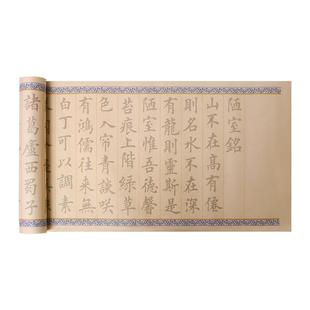 陋室銘
山不在高有僊
則名水不在深
有龍則靈斯是
陋室惟吾德馨
苔痕上階綠草
色入帘青談咲
有鴻儒往來無
白丁可以調素
諸葛廬西蜀子